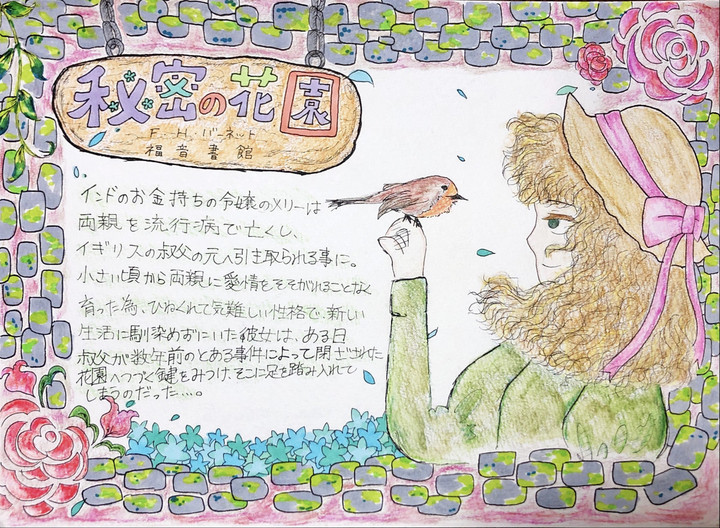 秘密の花園
F.H.バーネット
福音書館
インドのお金持ちの令嬢のメリーは
両親を流行り病で亡くし、
イギリスの叔父の元へ引き取られる事に。
小さい頃から両親に愛情をそそがれることなく
育った為、ひねくれて気難しい性格で、新しい
生活に馴染めずにいた彼女は、ある日
叔父が数年前のとある事件によって閉ざされた
花園へつづく鍵をみつけ、そこに足を踏み入れて
しまうのだった....。